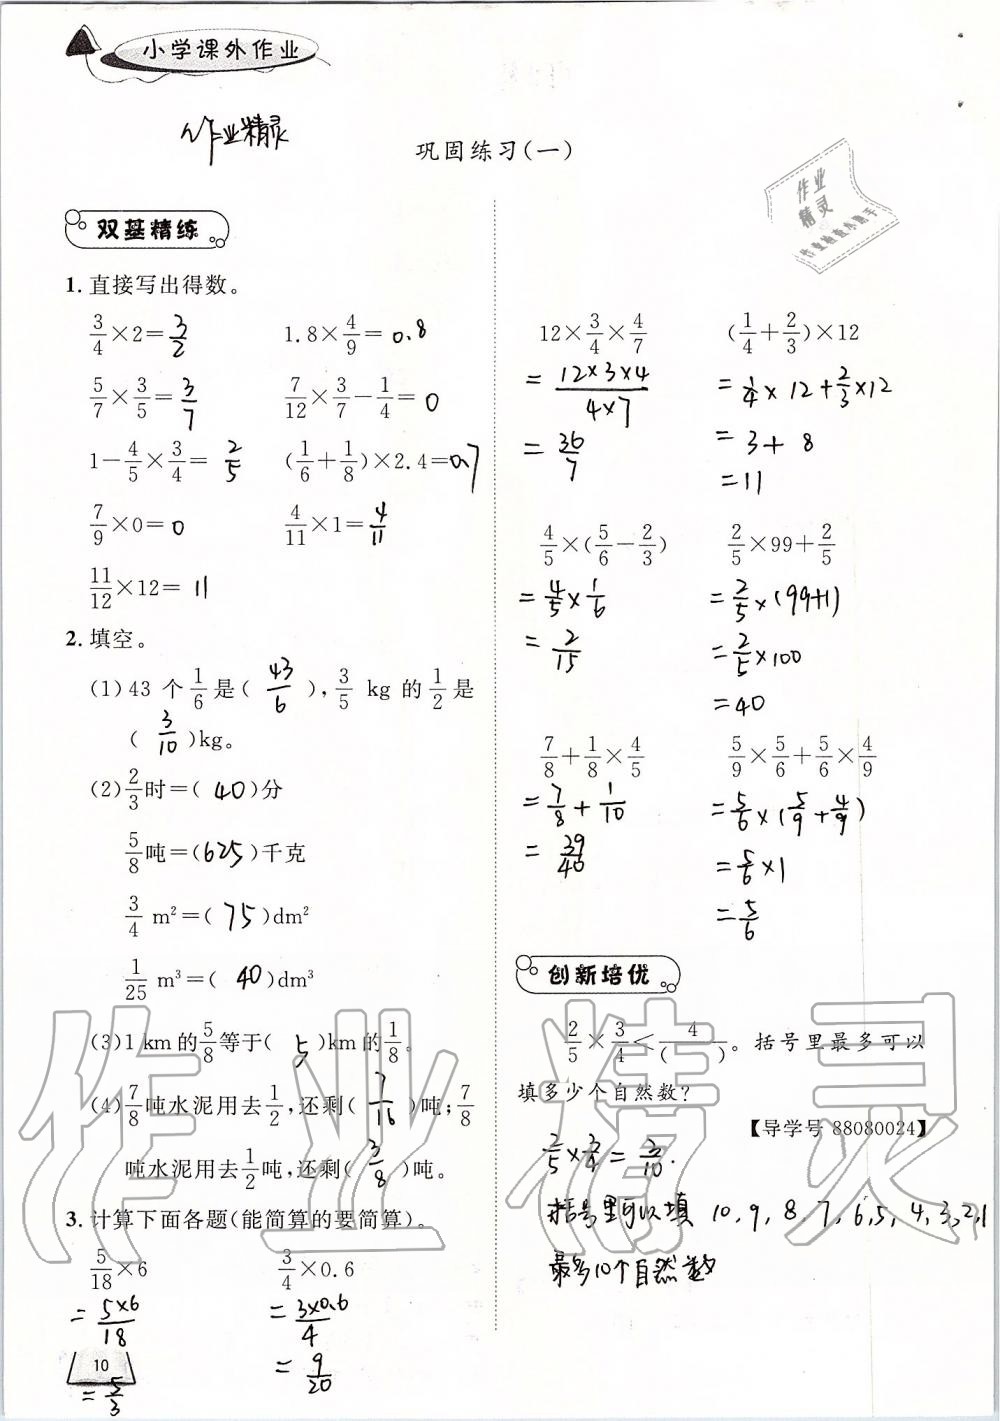 小学课外作业
作业精灵
巩固练习(一)
作业
精灵
作业检查小助手
双基精练
1. 直接写出得数。
3/4×2=3/2 1.8×4/9=0.8
5/7×3/5=3/7 7/12×3/7-1/4=0
1-4/5×3/4=2/5 (1/6+1/8)×2.4=0.7
7/9×0=0 4/11×1=4/11
11/12×12=11
2. 填空。
(1)43 个 1/6 是( 43/6 ), 3/5 kg 的 1/2 是
( 3/10 )kg。
(2) 2/3时=( 40 )分
5/8吨=(625)千克
3/4 m²=( 75 )dm²
1/25 m³=( 40 )dm³
(3)1 km的5/8等于( 5 )km的1/8。
(4) 7/8吨水泥用去1/2,还剩( 7/16 )吨; 7/8
吨水泥用去1/2吨,还剩( 3/8 )吨。
3. 计算下面各题(能简算的要简算)。
5/18×6 3/4×0.6
=5×6/18 =3×0.6/4
=5/3 =9/20
10
12×3/4×4/7 (1/4+2/3)×12
=12×3×4/4×7 =1/4×12+2/3×12
=36/7 =3+8
=11
4/5×(5/6-2/3) 2/5×99+2/5
=4/5×1/6 =2/5×(99+1)
=2/15 =2/5×100
=40
7/8+1/8×4/5 5/9×5/6+5/6×4/9
=7/8+1/10 =5/6×(5/9+4/9)
=39/40 =5/6×1
=5/6
创新培优
2/5×3/4<4/( )。括号里最多可以
填多少个自然数?
【导学号 88080024】
2/5×3/4=3/10.
括号里可以填 10,9,8,7,6,5,4,3,2,1
最多10个自然数
作业精灵